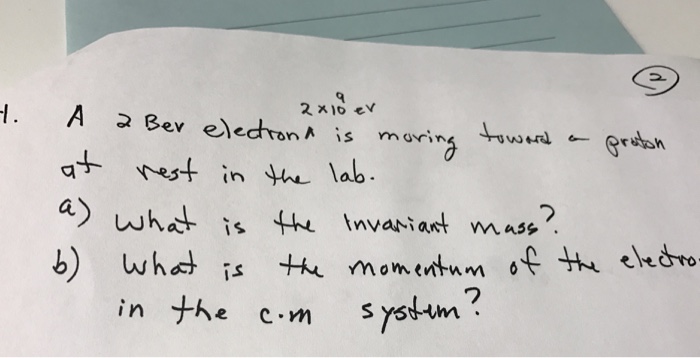 2
9
2×10 ev
1. A 2 Bev electron ^ is moving toward a proton
at rest in the lab.
a) what is the invariant mass?
b) what is the momentum of the electro
in the c.m system?